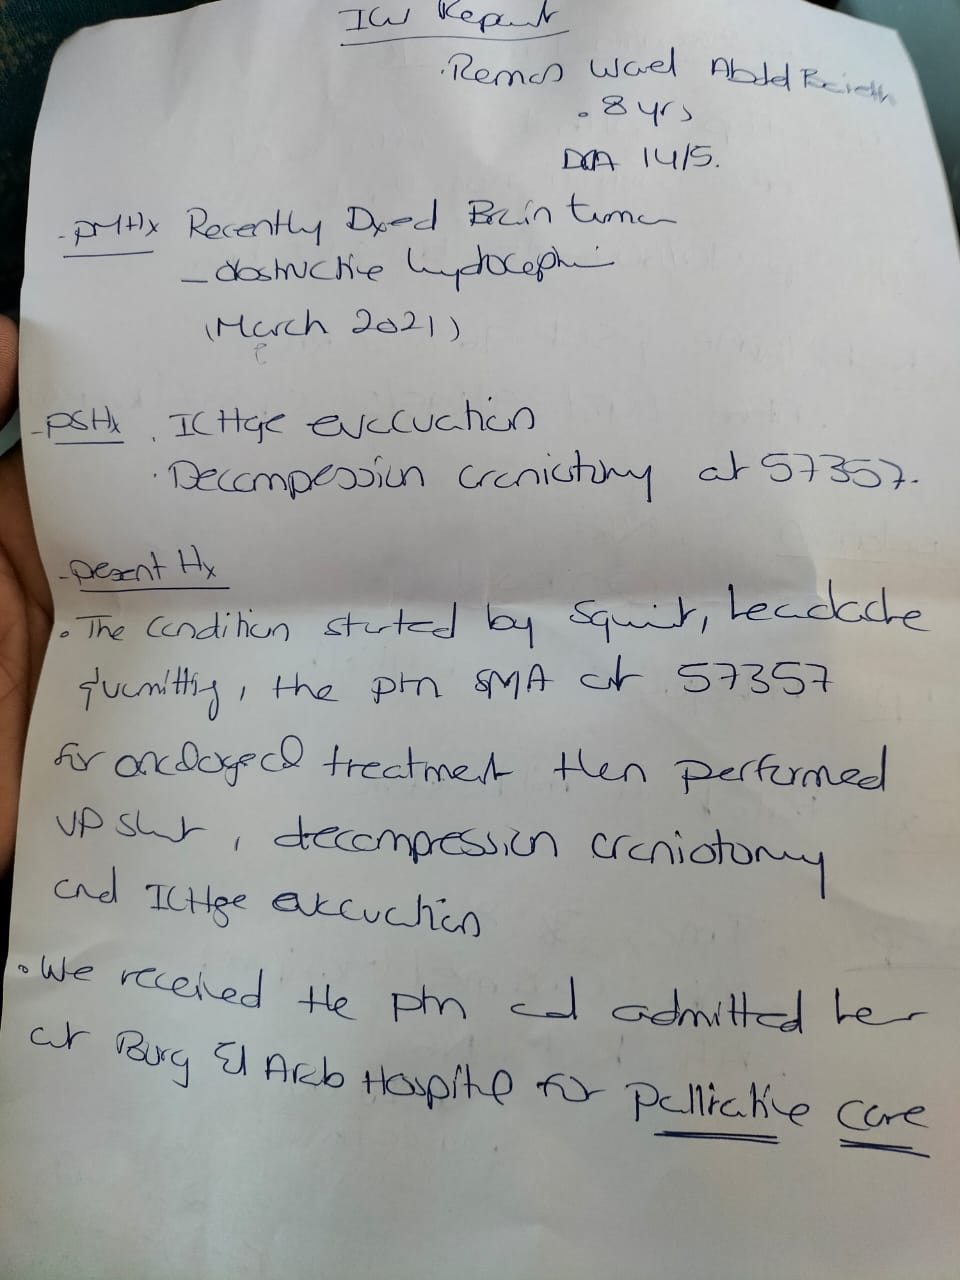 ICU Report
. Remas Wael Abdd
. 8 yrs
DOA 14/5.
- PMHx Recently Dxed Brain tumor
- obstructive hydrocephi
(March 2021)
- PSHx . ICHge evccuation
. Decompession craniotomy at 57357.
- pesent Hx
. The condition started by squint, headache
& vumitting, the ptn SMA at 57357
for oncological treatment then performed
VP shut, decompression craniotomy
and ICHge evccuation
. We received the ptn and admitted her
at Burg El Arab Hospital for Palliative care